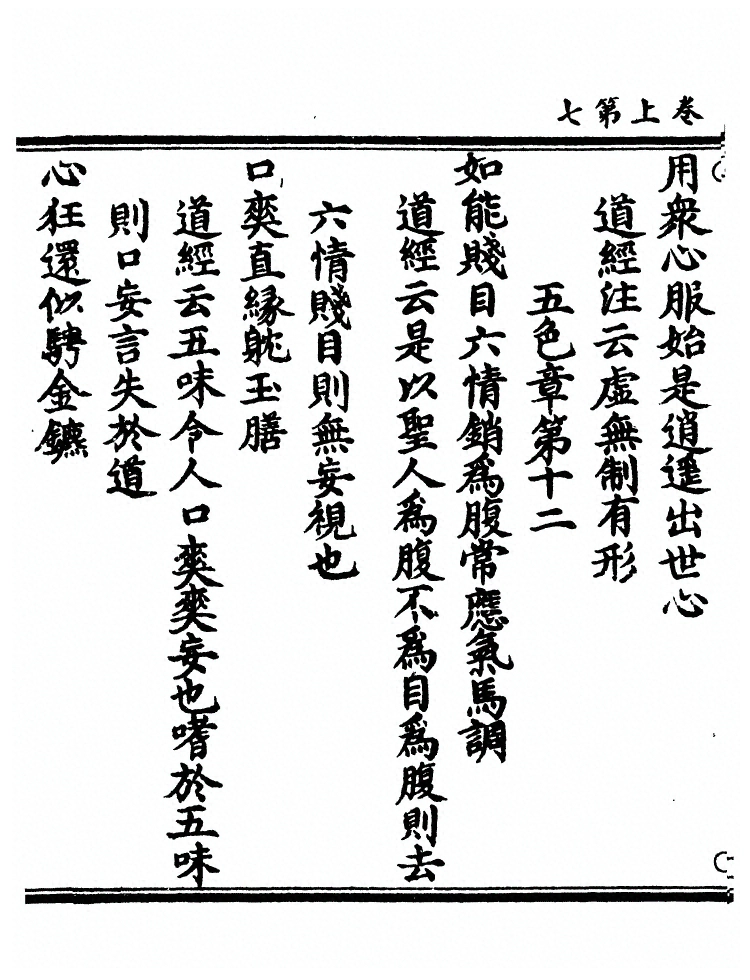 卷上第七
用衆心服始是逍遥出世心
道經注云虛無制有形
五色章第十二
如能賤目六情銷爲腹常應氣馬調
道經云是以聖人爲腹不爲目爲腹則去
六情賤目則無妄視也
口爽直緣躭玉膳
道經云五味令人口爽爽妄也嗜於五味
則口妄言失於道
心狂還似騁金鑣